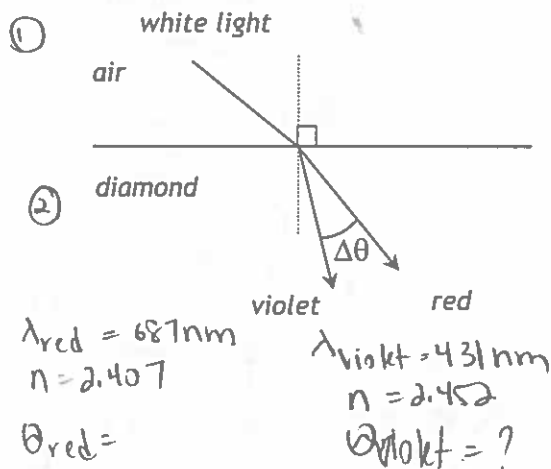 ①
white light
air
diamond
②
Δθ
violet
red
λred = 687nm
n = 2.407
θred =
λviolet = 431nm
n = 2.452
θviolet = ?